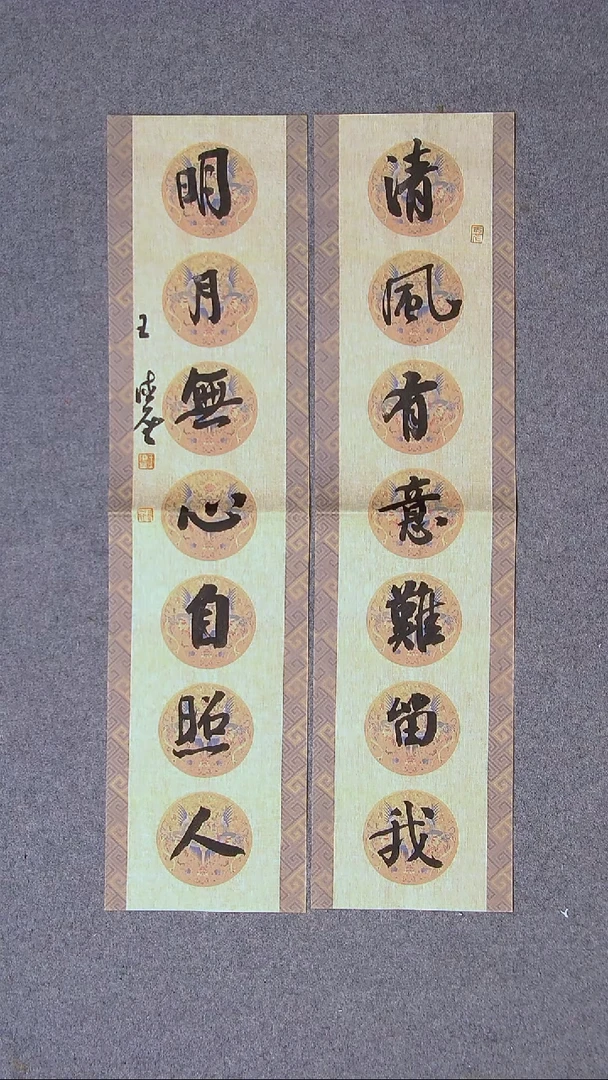 清風有意難留我
明月無心自照人
王